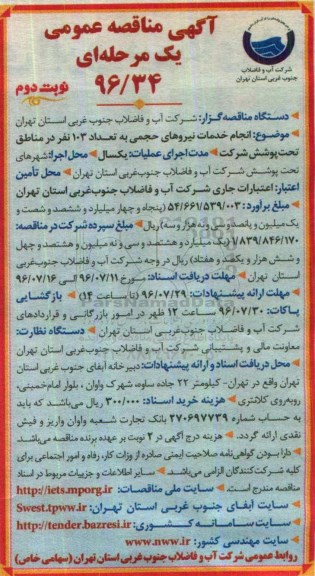 آگهی مناقصه عمومی
یک مرحله‌ای
۹۶/۳۴
نوبت دوم
شرکت آب و فاضلاب
جنوب غربی استان تهران
دستگاه مناقصه گزار: شرکت آب و فاضلاب جنوب غربی استان تهران
موضوع: انجام خدمات نیروهای حجمی به تعداد ۱۰۳ نفر در مناطق
تحت پوشش شرکت مدت اجرای عملیات: یکسال محل اجرا: شهرهای
تحت پوشش شرکت آب و فاضلاب جنوب‌غربی استان تهران محل تأمین
اعتبار: اعتبارات جاری شرکت آب و فاضلاب جنوب‌غربی استان تهران
مبلغ برآورد: ۵۴/۶۶۱/۵۳۹/۰۰۳ (پنجاه و چهار میلیارد و ششصد و شصت و
یک میلیون و پانصد و سی و نه هزار و سه) ریال مبلغ سپرده شرکت در مناقصه:
۱/۸۳۹/۸۴۶/۱۷۰ (یک میلیارد و هشتصد و سی و نه میلیون و هشتصد و چهل
و شش هزار و یکصد و هفتاد) ریال در وجه شرکت آب و فاضلاب جنوب‌غربی
استان تهران مهلت دریافت اسناد: مورخ ۹۶/۰۷/۱۱ الی ۹۶/۰۷/۱۶
مهلت ارائه پیشنهادات: ۹۶/۰۷/۲۹ (تا ساعت ۱۴) بازگشایی
پاکات: ۹۶/۰۷/۳۰ ساعت ۱۲ ظهر در امور بازرگانی و قراردادهای
شرکت آب و فاضلاب جنوب‌غربی استان تهران دستگاه نظارت:
معاونت مالی و پشتیبانی شرکت آب و فاضلاب جنوب‌غربی استان تهران
محل دریافت اسناد و ارائه پیشنهادات: دبیرخانه آبفای جنوب غربی استان
تهران واقع در تهران- کیلومتر ۲۲ جاده ساوه، شهرک واوان، بلوار امام‌خمینی،
روبه‌روی کلانتری هزینه خرید اسناد: ۳۰۰/۰۰۰ ریال می‌باشد که باید
به حساب شماره ۲۷۰۶۹۷۷۳۹ بانک تجارت شعبه واوان واریز و فیش
نقدی ارائه گردد. هزینه درج آگهی در ۲ نوبت بر عهده برنده مناقصه می‌باشد.
دارا بودن گواهی‌نامه صلاحیت ایمنی صادره از وزات کار، رفاه و امور اجتماعی برای
کلیه شرکت‌کنندگان الزامی می‌باشد. سایر اطلاعات و جزییات مربوط در اسناد
مناقصه مندرج است. سایت ملی مناقصات: http://iets.mporg.ir
سایت آبفای جنوب غربی استان تهران: Swest.tpww.ir
سایت سامانه کشوری: http://tender.bazresi.ir
سایت مهندسی کشور: www.nww.ir
روابط عمومی شرکت آب و فاضلاب جنوب غربی استان تهران (سهامی خاص)